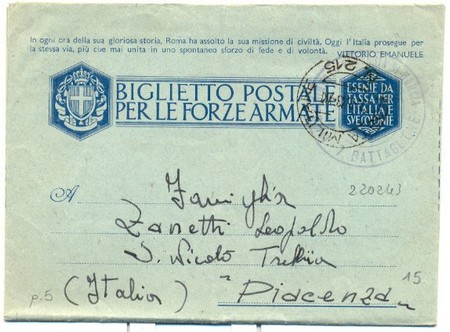 In ogni ora della sua gloriosa storia, Roma ha assolto la sua missione di civiltà. Oggi l'Italia prosegue per
la stessa via, più che mai unita in uno spontaneo sforzo di fede e di volontà. VITTORIO EMANUELE
BIGLIETTO POSTA
PER LE FORZE ARMATE
ESENTE DA
TASSA PER
L'ITALIA E
SVE COLONIE
215
BATTAGLIONE
A
Famiglia
220243
Zanetti Leopoldo
S. Nicolò Trebbia
(Italia) "Piacenza"
p.5
15